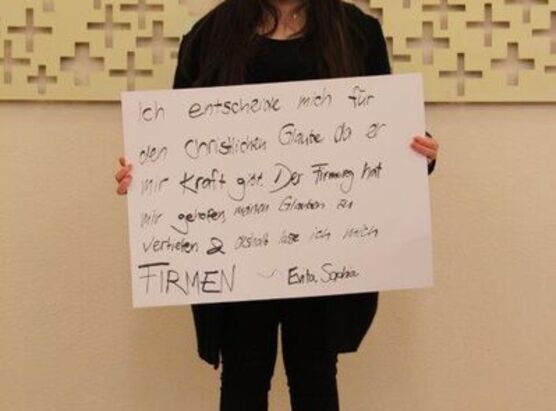 Ich entscheide mich für
den christlichen Glaube da er
mir Kraft gibt. Der Firmweg hat
mir geholfen meinen Glauben zu
vertiefen & deshalb lasse ich mich
FIRMEN Evita, Sophia